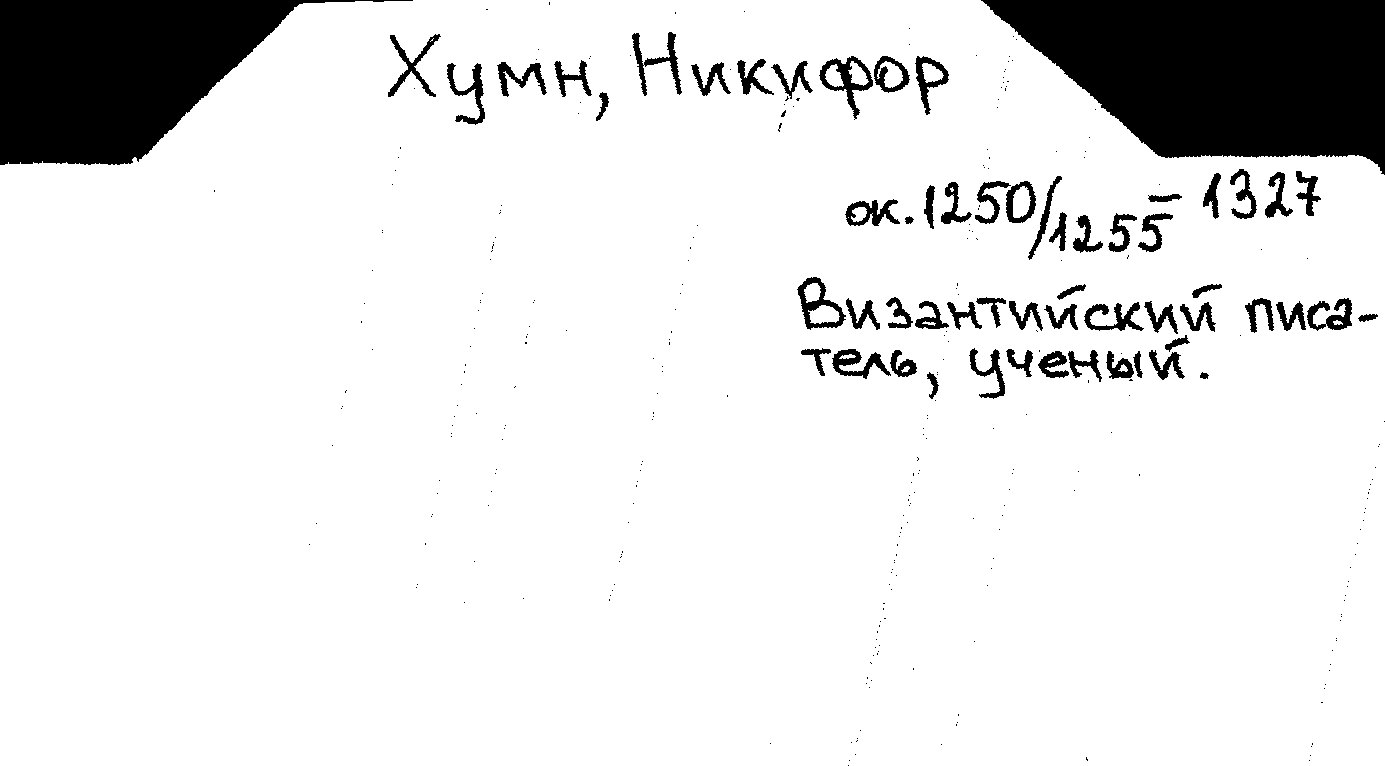 Хумн, Никифор
ок. 1250/1255 - 1327
Византийский писа-
тель, ученый.